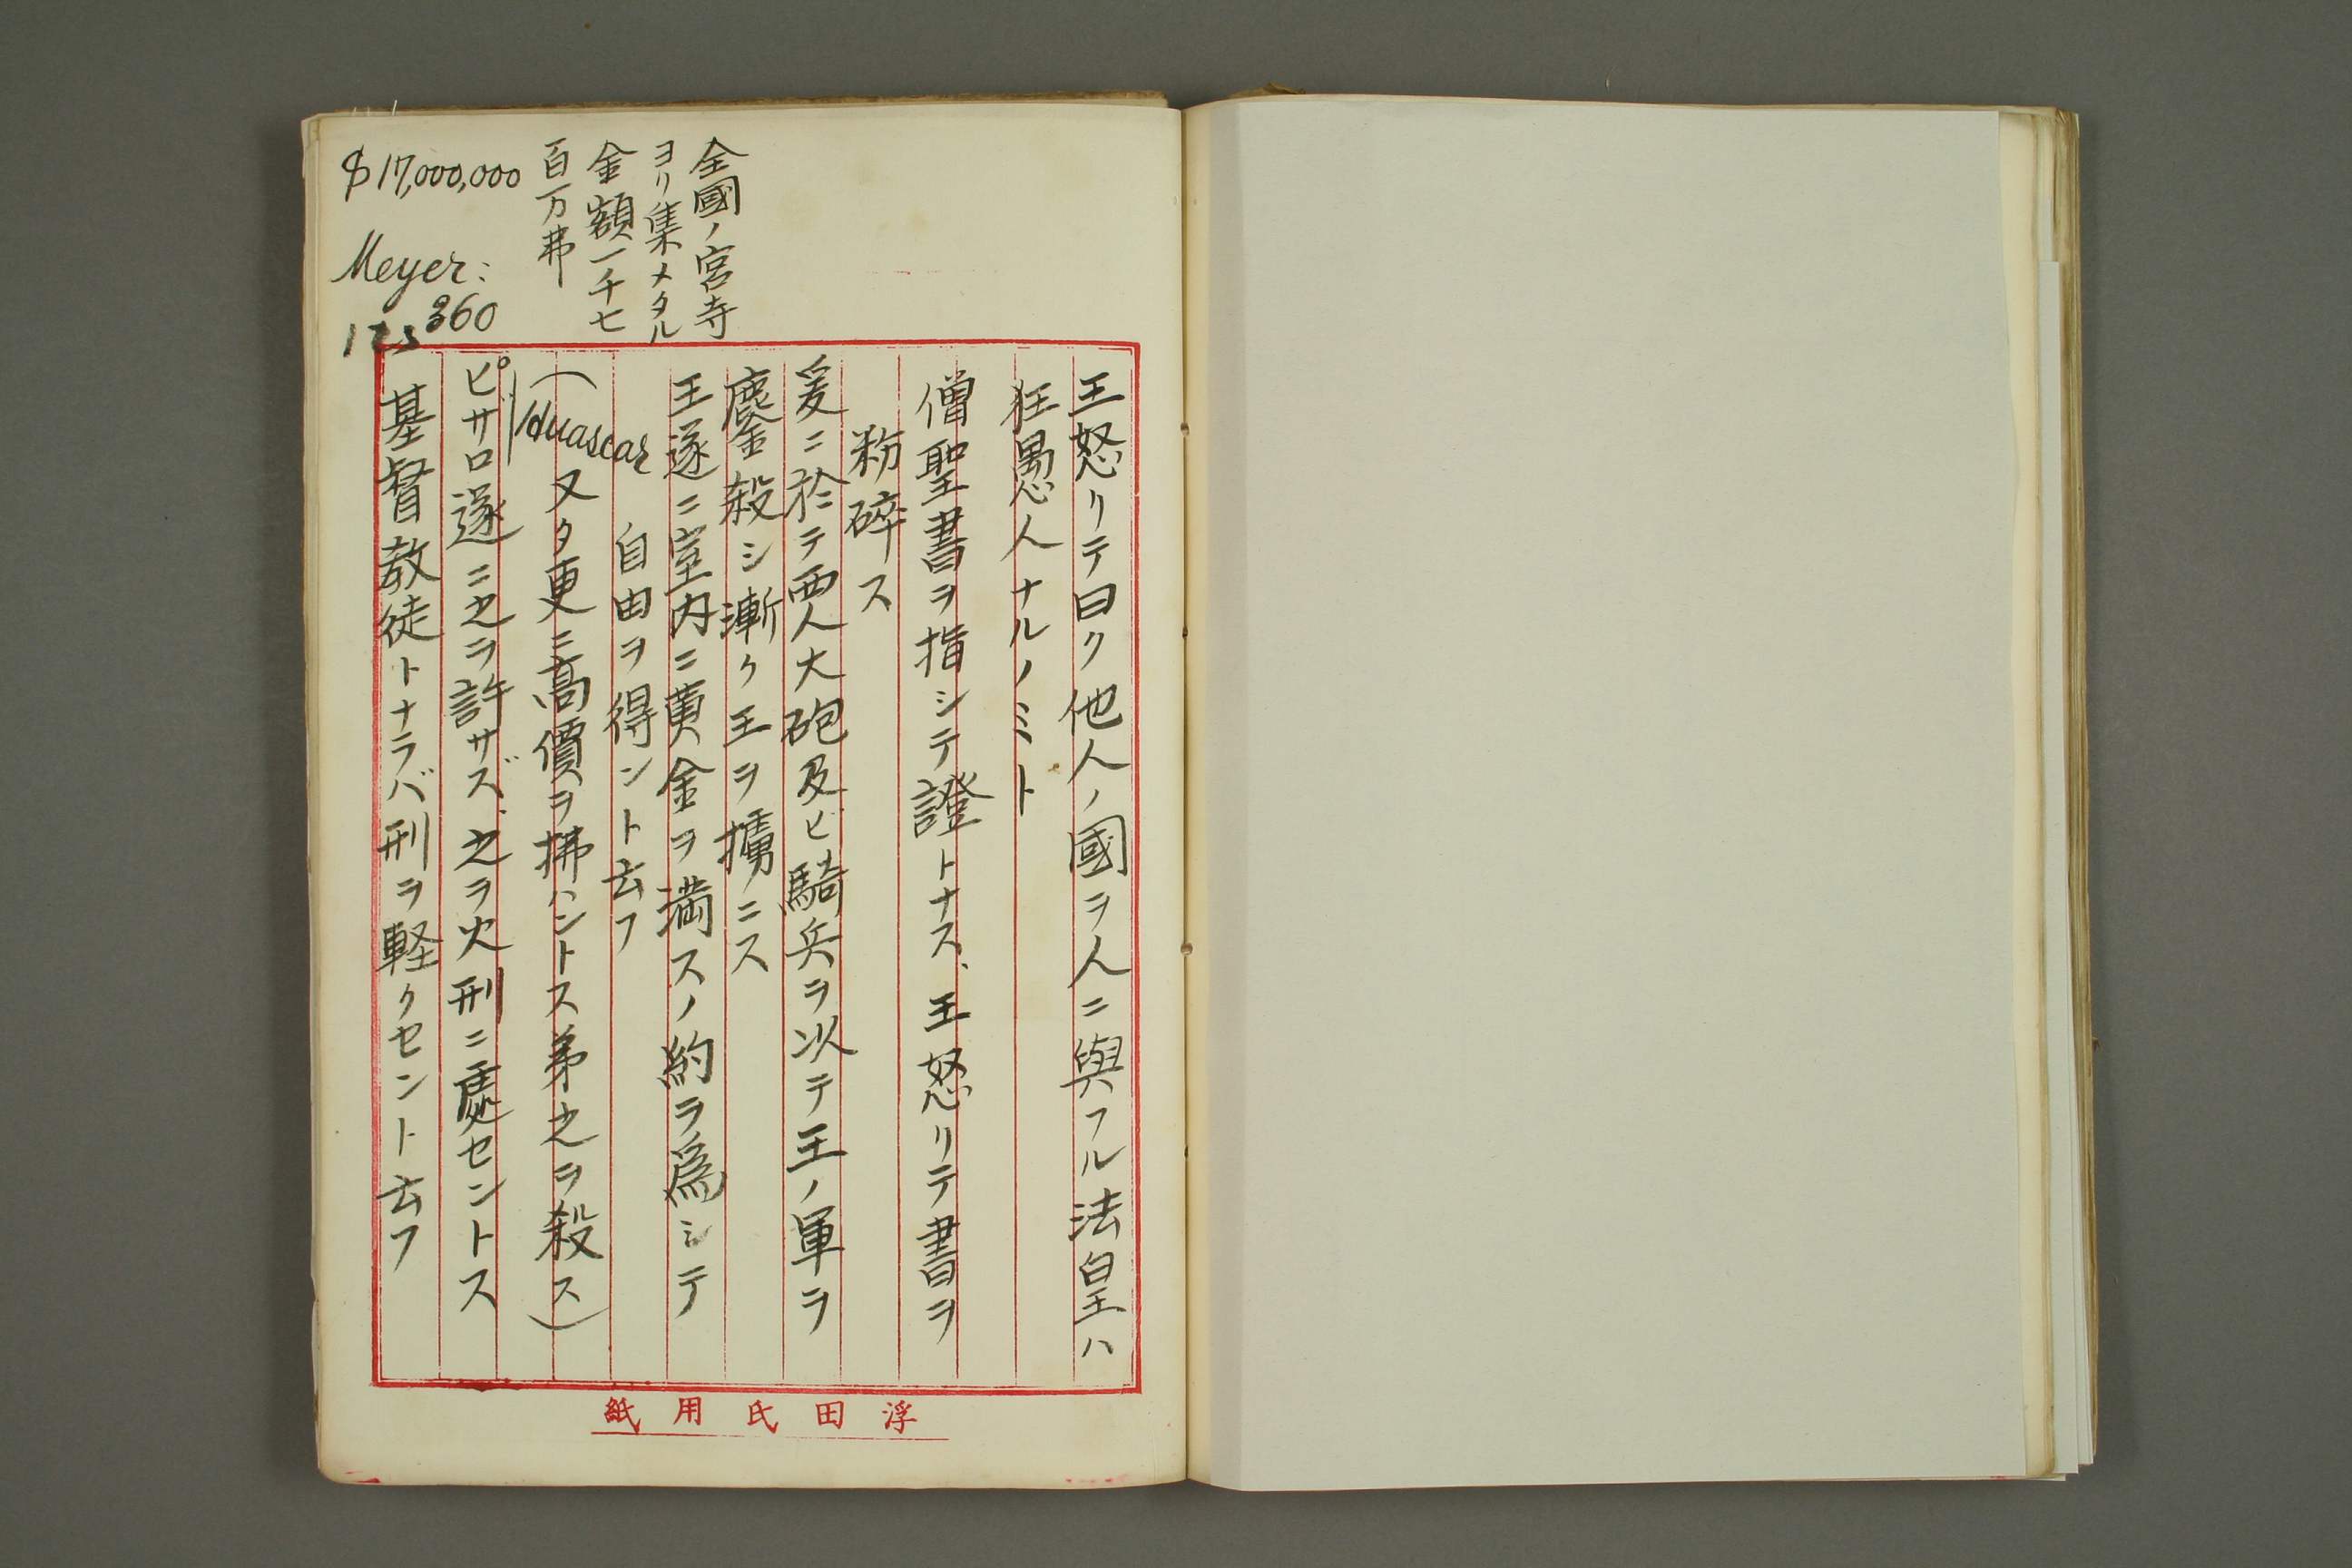 全國ノ宮寺
ヨリ集メタル
金額一千七
百万弗
$17,000,000
Meyer:
360
王怒リテ曰ク他人ノ國ヲ人ニ與フル法皇ハ
狂愚人ナルノミト
僧聖書ヲ指シテ證トナス、王怒リテ書ヲ
粉碎ス
爰ニ於テ西人大砲及ビ騎兵ヲ以テ王ノ軍ヲ
鏖殺シ漸ク王ヲ擄ニス
王遂ニ室内ニ黄金ヲ満スノ約ヲ爲シテ
自由ヲ得ント云フ
(Huascar又タ更ニ高價ヲ拂ハントス弟之ヲ殺ス)
ピサロ遂ニ之ヲ許サズ、之ヲ火刑ニ處セントス
基督教徒トナラバ刑ヲ軽クセント云フ
浮田氏用紙